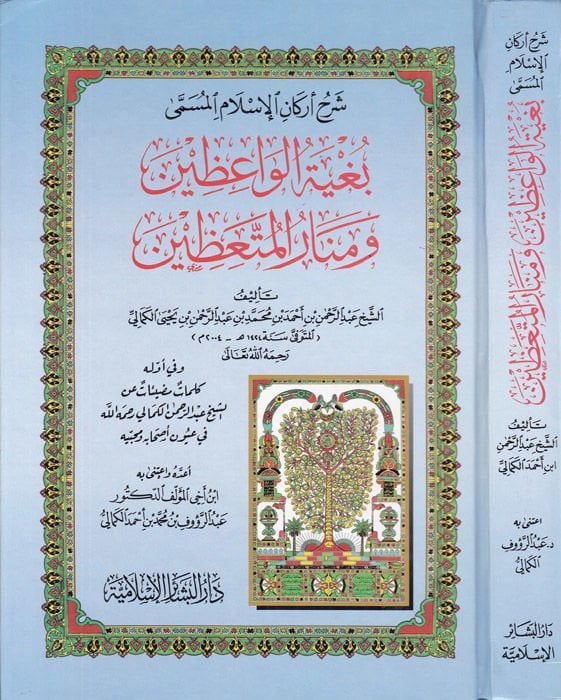 شرح أركان الإسلام المسمى
بغية الواعظين
ومنار المتعظين
تأليف
الشيخ عبد الرحمن بن أحمد بن محمد بن عبد الرحمن بن يحيى الكمالي
(المتوفى سنة ١٤٢٤هـ - ٢٠٠٤م)
رحمه الله تعالى
وفي أوله
كلمات مضيئات عن
لشيخ عبد الرحمن الكمالي رحمه الله
في عيون أصحابه ومحبيه
أعده واعتنى به
ابن أخي المؤلف الدكتور
عبد الرؤوف بن محمد بن أحمد الكمالي
دار البشائر الإسلامية
شرح أركان
الإسلام
المسمى
بغية الواعظين ومنار المتعظين
تأليف
الشيخ عبد الرحمن
ابن أحمد الكمالي
اعتنى به
د. عبد الرؤوف
الكمالي
دار البشائر
الإسلامية